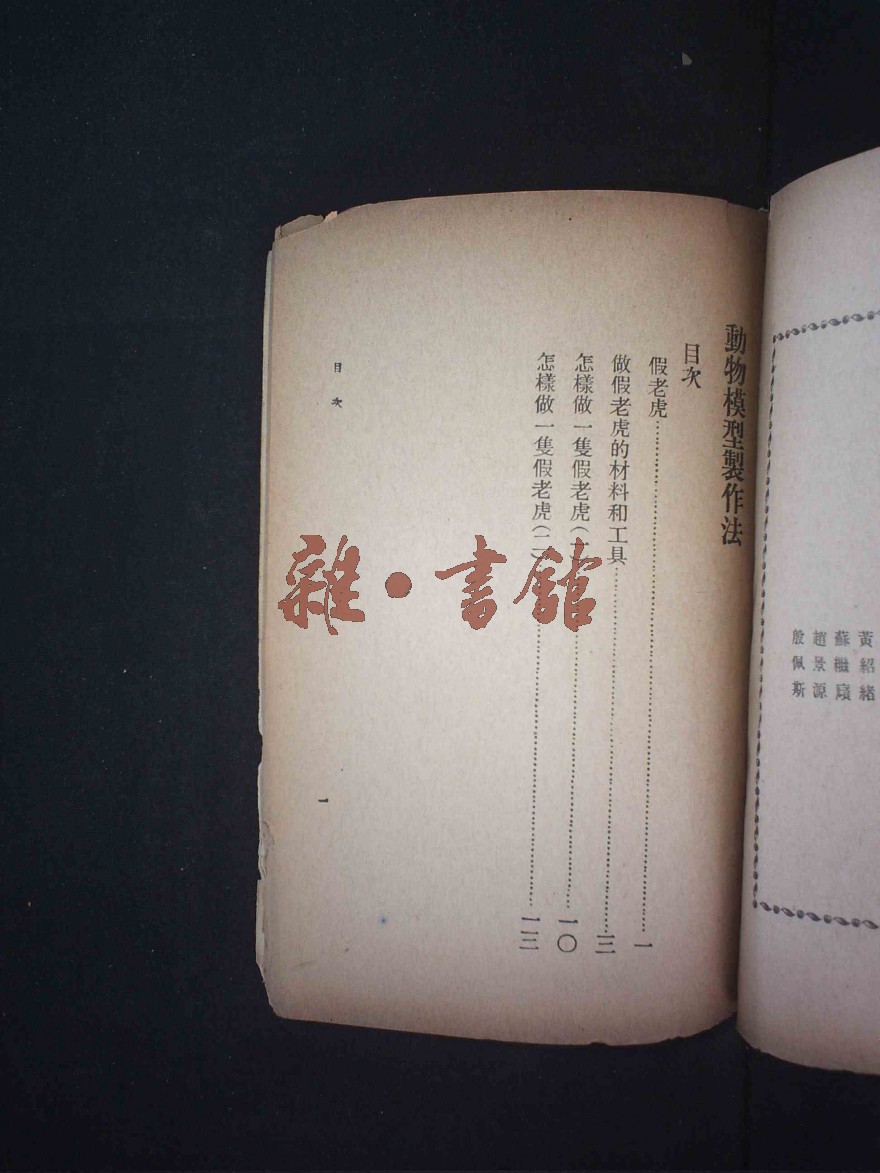 黃紹緒
蘇繼廎
趙景源
殷佩斯
動物模型製作法
目次
假老虎……一
做假老虎的材料和工具……三
怎樣做一隻假老虎(一)……一〇
怎樣做一隻假老虎(二)……一三
目次
一
雜·書館